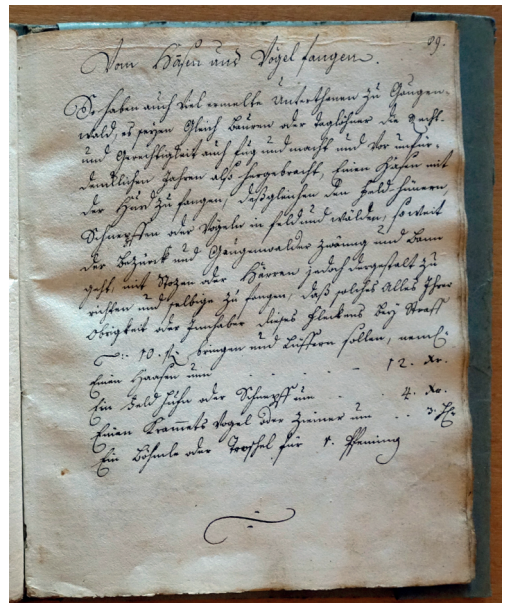 99.
Vom Hasen und Vögel fangen.
So haben auch viel ermelte Unterthanen zu Gaugen-
wald, es seyen Gleich Bauren oder Taglöhner die Recht
und Gerechtigkeit auch fug und macht und vor unfür-
dencklichen Jahren also hergebracht, Einen Hasen mit
der Hurd zu fangen, deßgleichen den Feld hünern,
Schnepffen oder Vögeln in feld und wälden, so weit
der Bezürck und Gaugenwalder zwäng und Bann
geht mit Stozen oder Härren jedoch dergestalt zu
richten und selbige zu fangen, daß solches Alles Ihrer
Obrigkeit oder Innhaber dieses fleckens bey Straff
10. bringen und lüffern sollen, neml:
Einen Haasen um - - - 12. Xr.
Ein Feld huhn oder Schnepff um - - 4. Xr.
Einen Krammets vogel oder Zeiner um - - 3.
Ein Böhmle oder Troschel für 1. Pfening